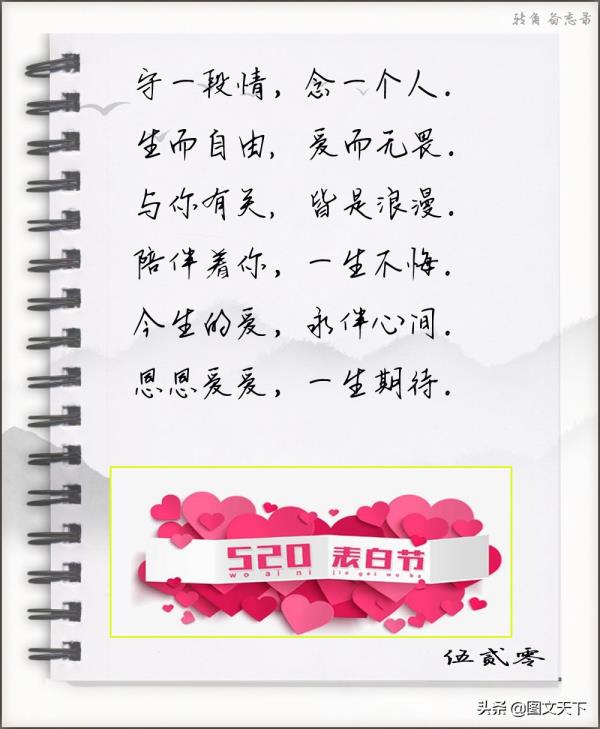 转角 备忘录
守一段情，念一个人．
生而自由，爱而无畏．
与你有关，皆是浪漫．
陪伴着你，一生不悔．
今生的爱，永伴心间．
恩恩爱爱，一生期待．
520 表白节
wo ai ni jia gei wo ba
伍贰零
头条 @图文天下